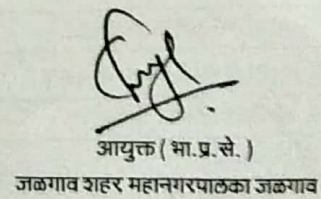 आयुक्त ( भा.प्र.से. )
जळगाव शहर महानगरपालका जळगाव